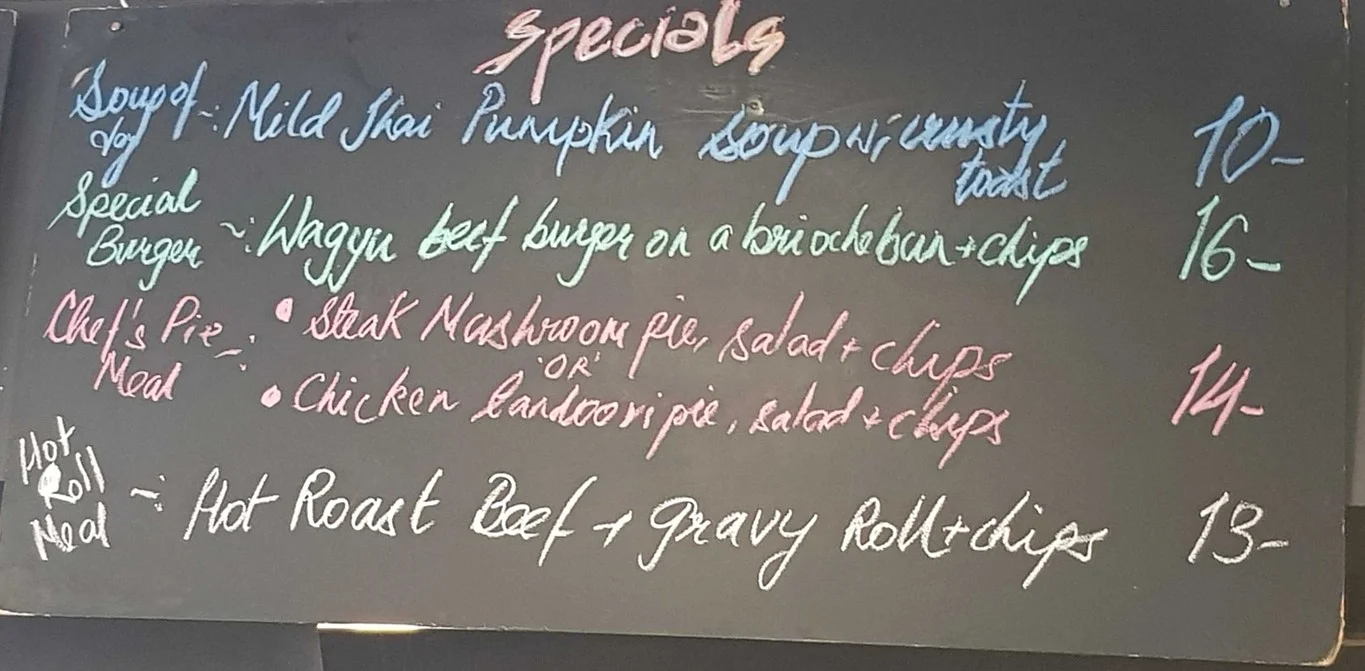 Specials
Soup of day ~: Mild Thai Pumpkin Soup w/ crusty toast 10-
Special Burger ~: Wagyu beef burger on a brioche bun + chips 16-
Chef's Pie Meal ~: • Steak Mushroom pie, salad + chips
'OR'
• Chicken tandoori pie, salad + chips 14-
Hot Roll Meal ~: Hot Roast Beef + gravy Roll + chips 13-